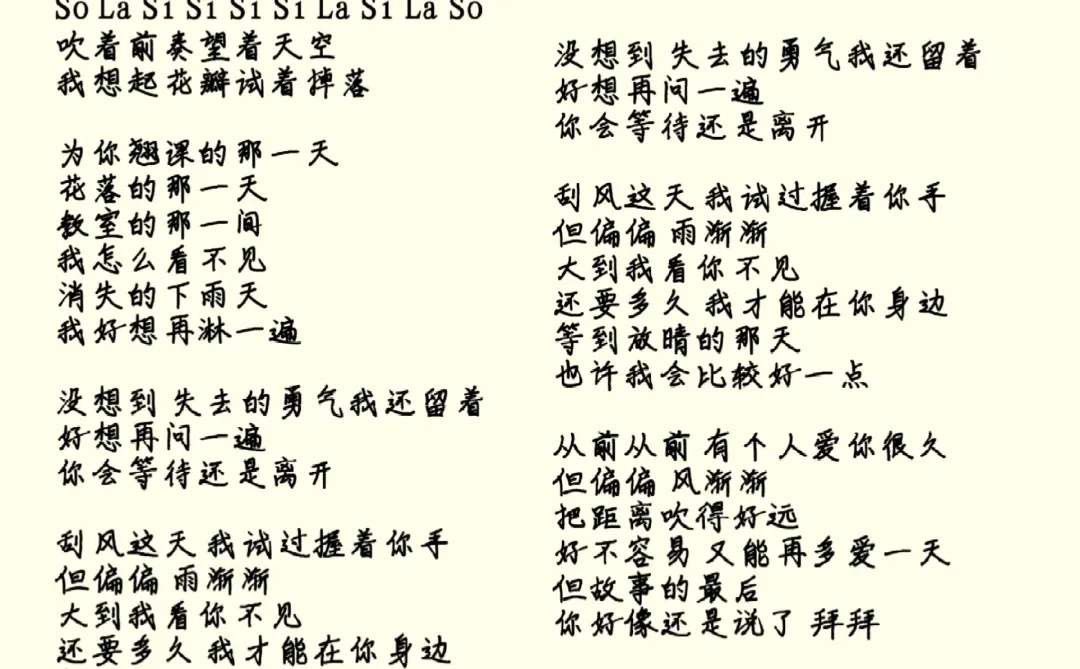 So La Si Si Si Si La Si La So
吹着前奏望着天空
我想起花瓣试着掉落
为你翘课的那一天
花落的那一天
教室的那一间
我怎么看不见
消失的下雨天
我好想再淋一遍
没想到 失去的勇气我还留着
好想再问一遍
你会等待还是离开
刮风这天 我试过握着你手
但偏偏 雨渐渐
大到我看你不见
还要多久 我才能在你身边
没想到 失去的勇气我还留着
好想再问一遍
你会等待还是离开
刮风这天 我试过握着你手
但偏偏 雨渐渐
大到我看你不见
还要多久 我才能在你身边
等到放晴的那天
也许我会比较好一点
从前从前 有个人爱你很久
但偏偏 风渐渐
把距离吹得好远
好不容易 又能再多爱一天
但故事的最后
你好像还是说了 拜拜